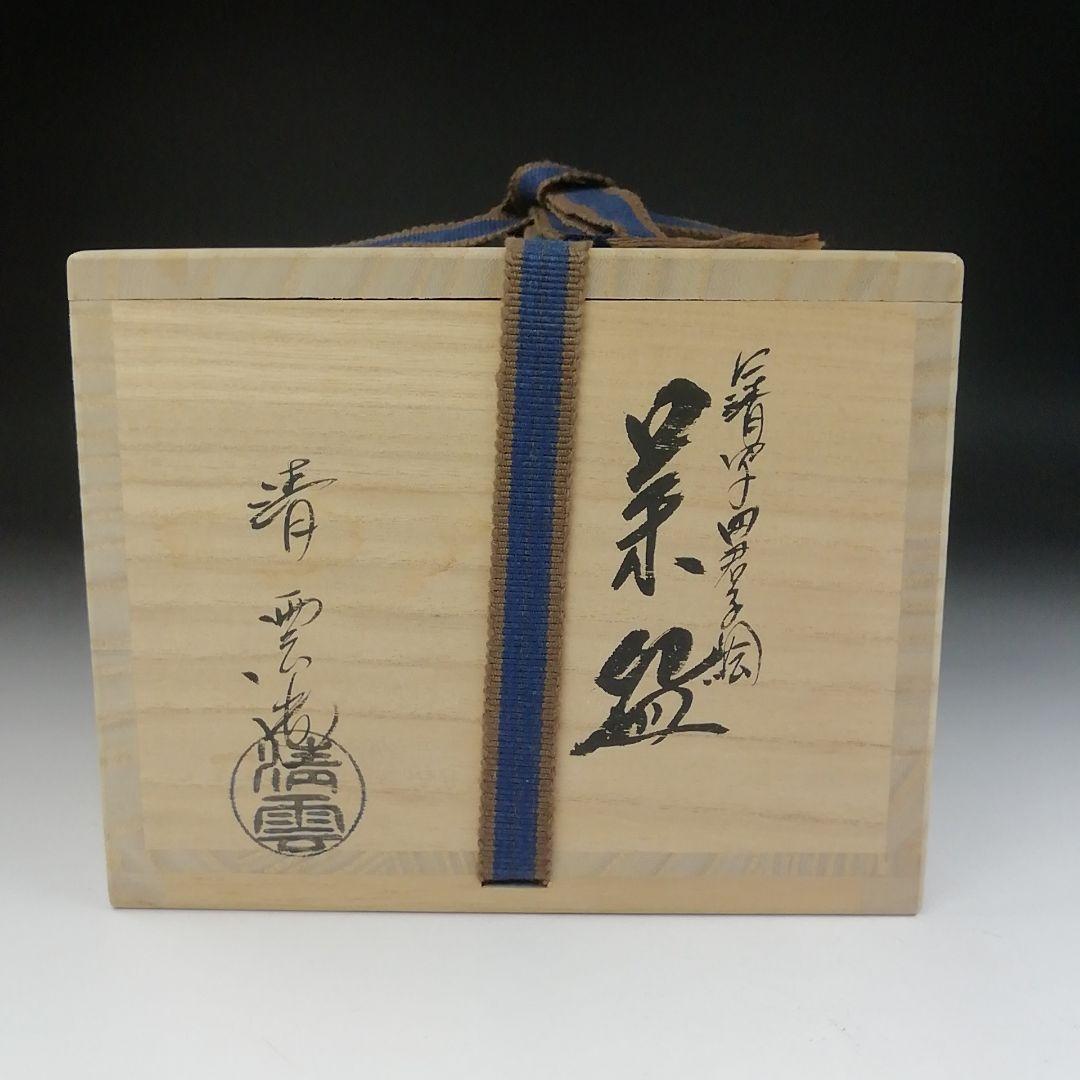 仁清写四君子絵
茶盌
清雲造
清雲